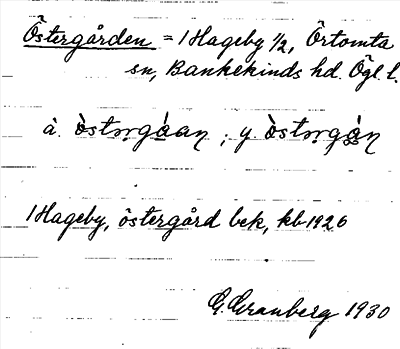 Östergården = 1 Hageby 1/2, Örtomta
sn, Bankekinds hd. Ögl. l.
ä. òstərgáan ; y. òstərgán
1 Hageby, östergård bek, kb 1926
G. Granberg 1930